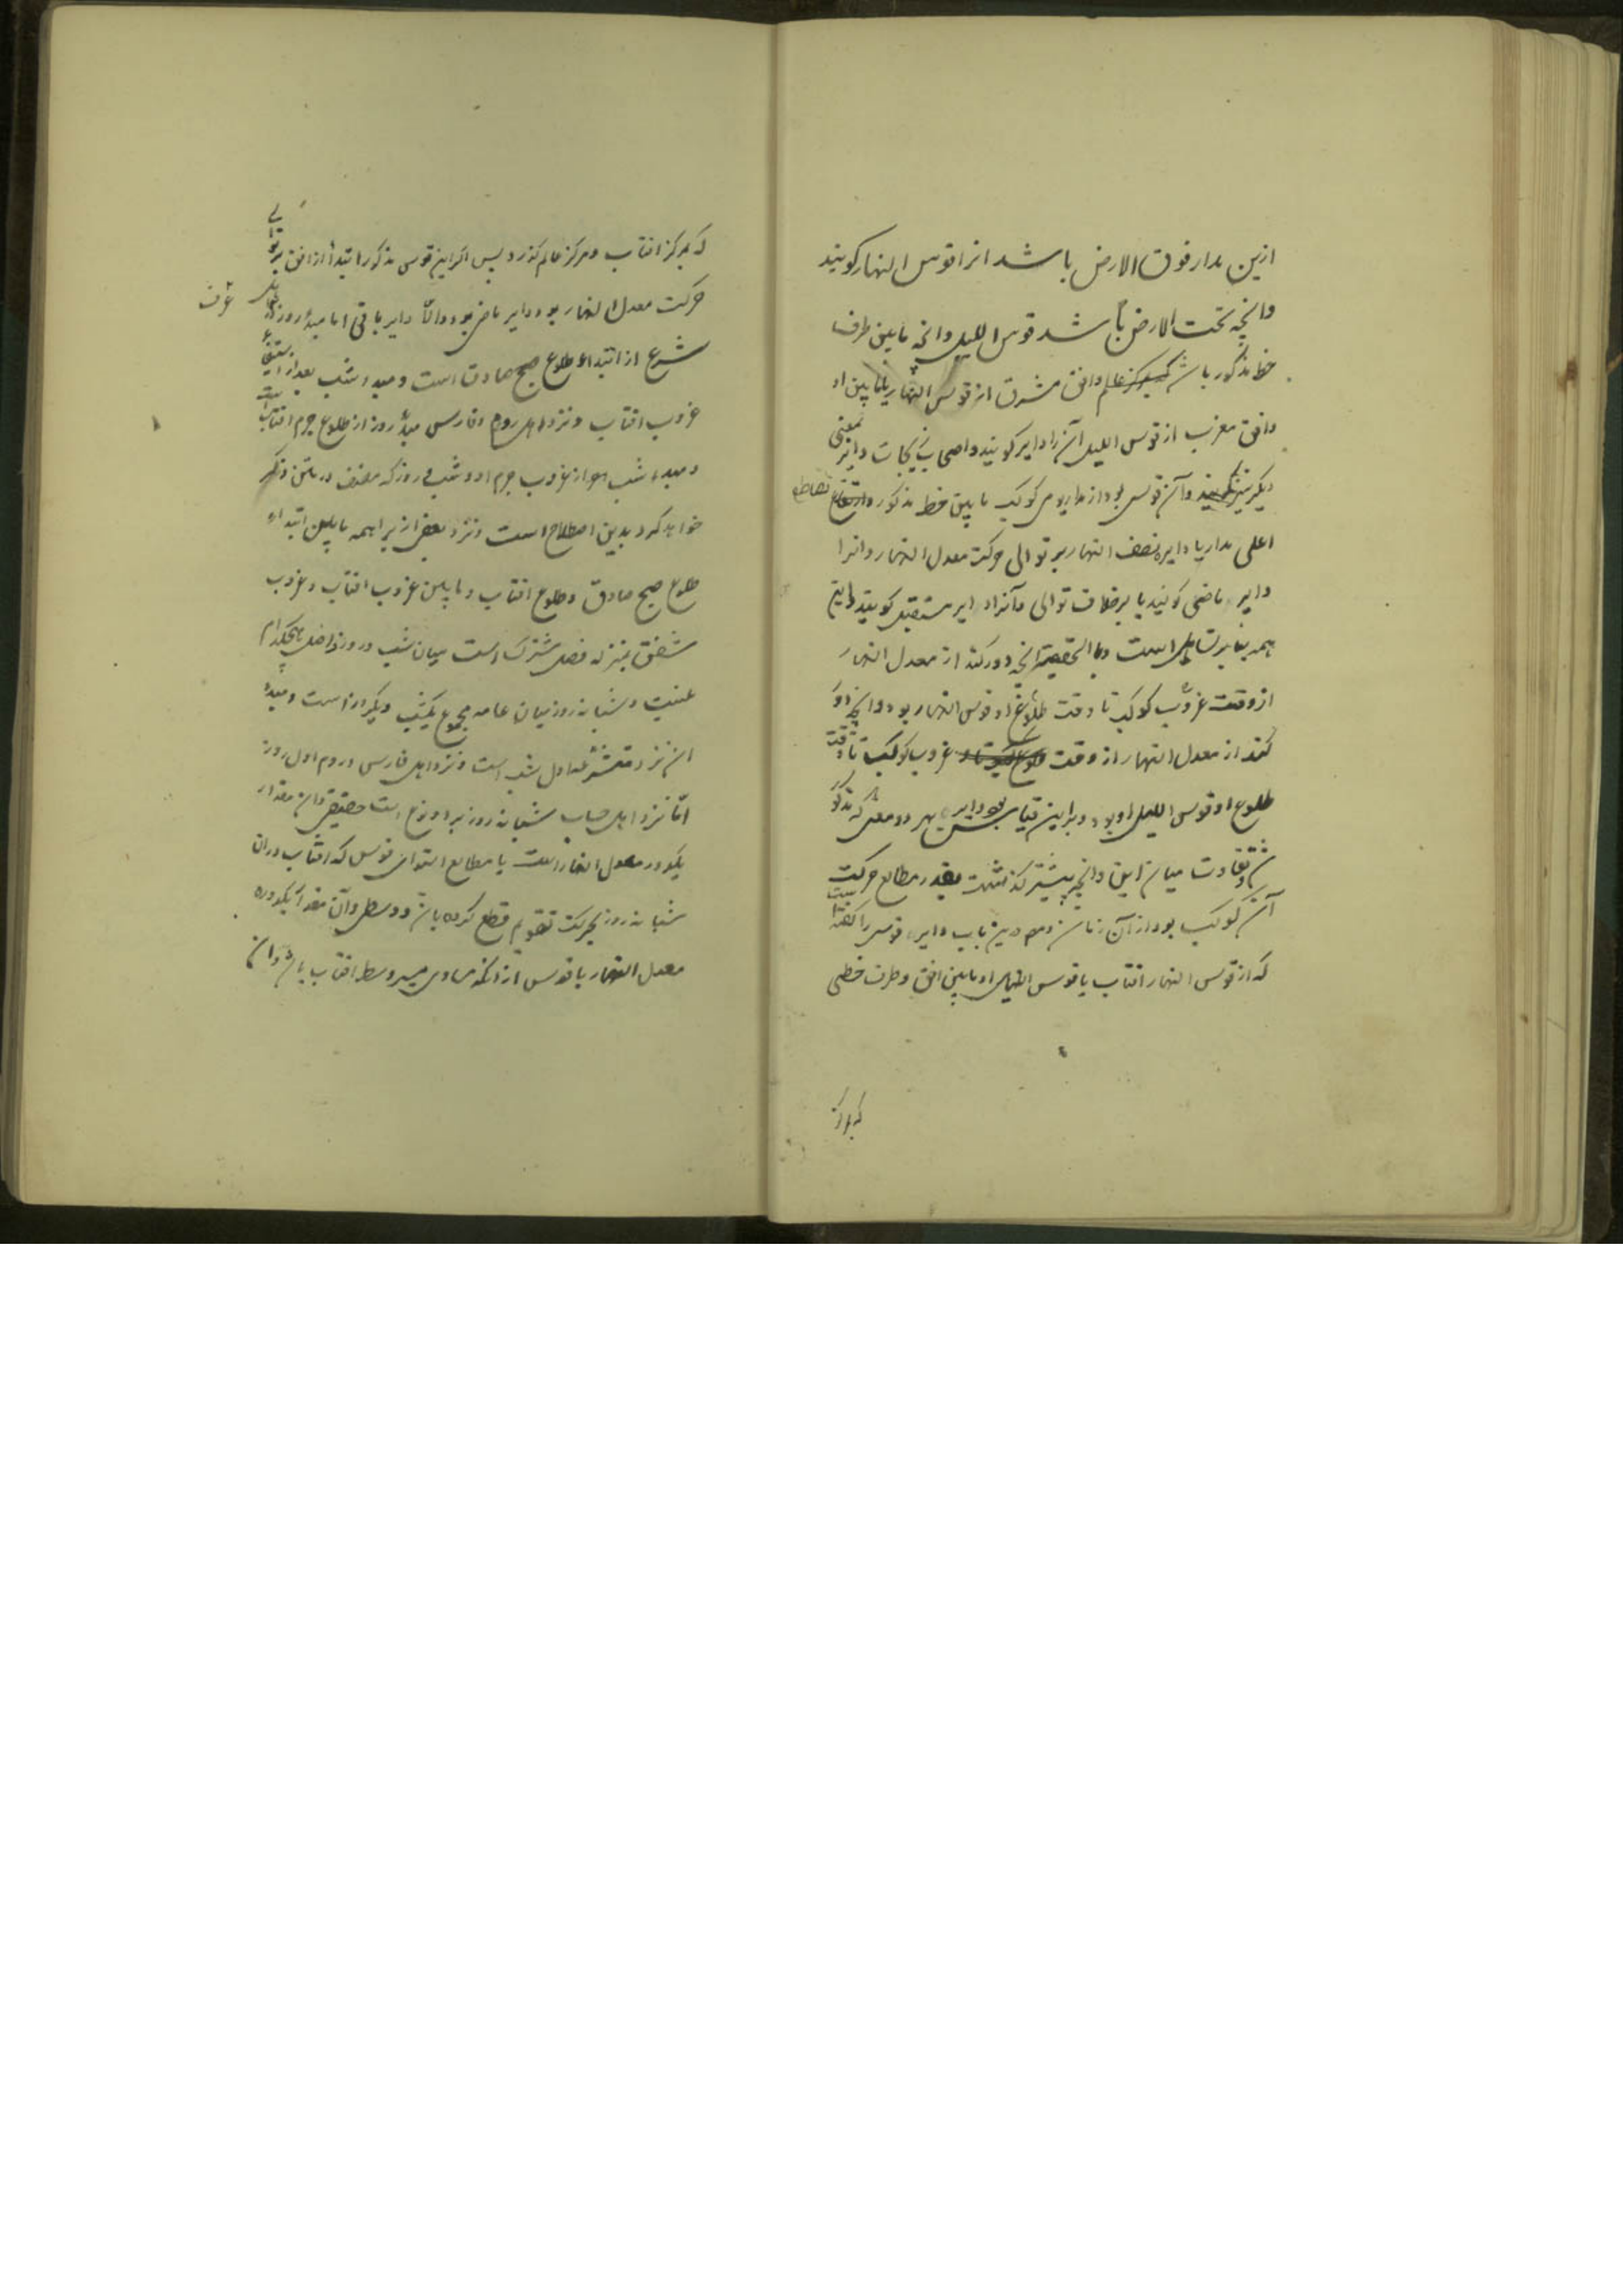 ازین مدار فوق الارض باشد انرا قوس النهار کویند
وانچه تحت الارض باشد قوس اللیل وانچه مابین طرف
خط مذکور باشد عالم وافق مشرق از قوس النهار یا مابین او
وافق مغرب از قوس اللیل آن را دایر کویند واصحاب دایر بمعنی
دیکر نیز وآن قوسی بود از مدار یومی کوکب مابین خط مذکور و تقاطع
اعلی مدار با دایره نصف النهار بر توالی حرکت معدل النهار وانرا
دایر ماضی کویند یا برخلاف توالی وآنرا دایر مستقبل کویند واین
همه بنابر تساهل است وبالحقیقة انچه دور کند از معدل النهار
از وقت غروب کوکب تا وقت طلوع او قوس النهار بود وانچه دور
کند از معدل النهار از وقت غروب کوکب تا وقت
طلوع او قوس اللیل او بود وبراین قیاس بود دایر بهر دو معنی که مذکور
شد وتفاوت میان این وانچه پیشتر کذشت بقدر مطالع حرکت
آن کوکب بود از آن زمان ودرین باب دایر قوسی را کفته است
که از قوس النهار افتاب یا قوس اللیل او مابین افق وطرف خطی
که بمرکز
که بمرکز افتاب ومرکز عالم کذرد پس اکر این قوس مذکور ابتدا از افق بر توالی
حرکت معدل النهار بود دایر ماضی بود والّا دایر باقی اما مبدأ روز
عرف
شرع از ابتداء طلوع صبح صادق است ومبدء شب بعد از
غروب افتاب ونزد اهل روم وفارس مبدأ روز از طلوع جرم افتاب است
ومبدء شب هم از غروب جرم او وشب وروز که مصنف در متن ذکر
خواهد کرد بدین اصطلاح است ونزد بعضی از براهمه مابین ابتداء
طلوع صبح صادق وطلوع افتاب ومابین غروب افتاب وغروب
شفق بمنزله فصل مشترک است میان شب وروز داخل بهیچکدام
نیست وشبانه روز میان عامه مجموع یکشب ویکروز است ومبدء
ان نزد اول شب است ونزد اهل فارس وروم اول روز
امّا نزد اهل حساب شبانه روز بر دو نوع است حقیقی وان مقدار
یکدور معدل النهار است با مطالع استوای قوسی که افتاب در ان
شبانه روز بحرکت تقویم قطع کرده باشد ووسطی وآن مقدار یکدوره
معدل النهار با قوسی از انکه مساوی سیر وسط افتاب باشد وان